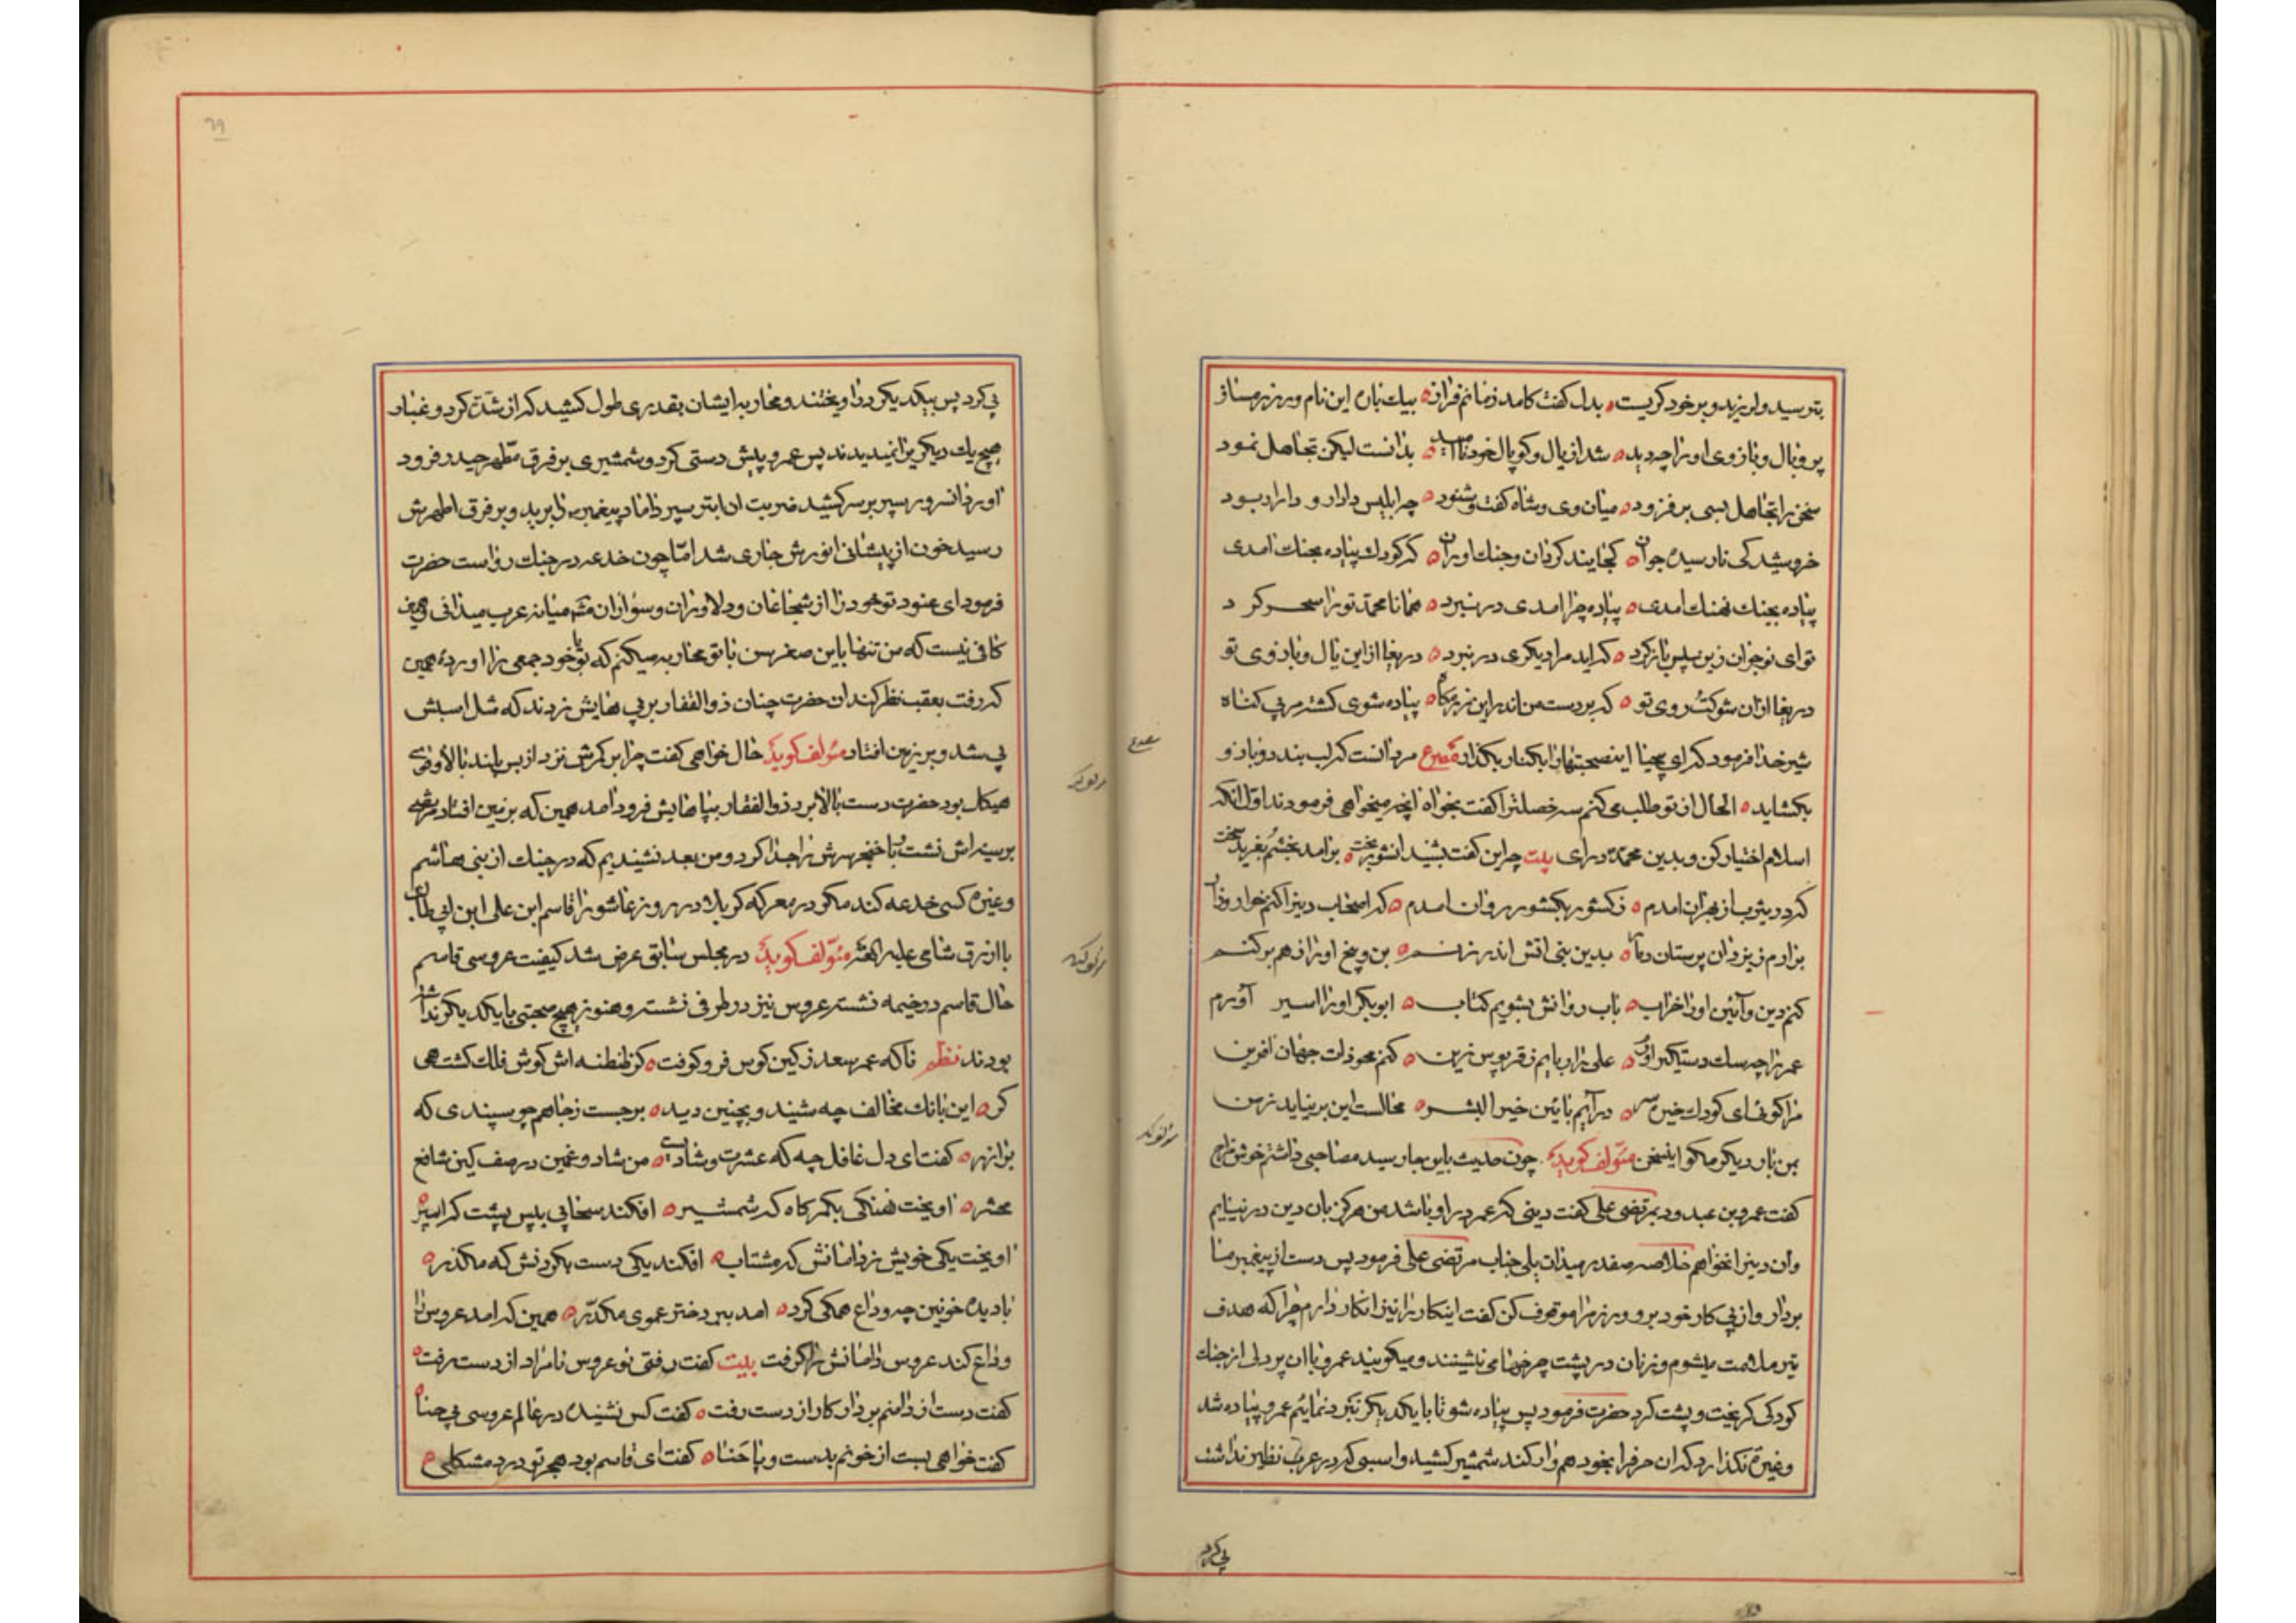 بترسید ولرزید و بر خود کریست ه بدل کفت کامد زمانم فراز ه بیك باره این نام ورزرمساز
پر و بال و بازوی او را چه دید ه شد از یال و کوپال خود ناامید ه بدانست لیکن تجاهل نمود
سخن را تجاهل بسی بر فزود ه میان وی و شاه کفت و شنود ه چرا ابلیس دادار و دارا بود
خروشید کی نارسیده جوان ه کجایند کردان و جنك اوران ه که کودك پیاده بجنك امدی
پیاده بجنك نهنك امدی ه پیاده چرا امدی در نبرد ه همانا محمد تو را سحر کرد
تو ای نوجوان زین سپس بازکرد ه که اید مرا دیکری در نبرد ه دریغا از این یال و بازوی تو
دریغا ازان شوکت روی تو ه که بر دست من اندر این رزمکاه ه پیاده شوی کشته بی کناه
شیر خدا فرمود که ای بیحیا این نصیحتها را بکنار بکذار مصرع مرد انست که لب بندد و بازو
بکشاید ه الحال از تو طلب می کنم سه خصلت را کفت بخواه انچه میخواهی فرمودند اول انکه
اسلام اختیار کن و بدین محمد در ای بیت چو این کفت بشنید ان شور بخت ه برامد بخشم بغرید سخت
که در یثرب از بهر ان امدم ه ز کشور بکشور روان امدم ه که اصحاب دین را کنم خوار و زار
برارم ز یزدان پرستان دمار ه بدین نبی اتش اندر زنم ه بن و بیخ او را ز هم بر کنم
کنم دین و آئین او را خراب ه باب روانش بشویم کتاب ه ابوبکر او را اسیر آورم
عمر را چه سك دستکیر اورم ه علی را ربایم ز قربوس زین ه کنم محو ذات جهان افرین
مرا کوئی ای کودك خیره سر ه در آیم بائین خیر البشر ه محالست این بر نیاید ز من
بمن بار دیکر مکو این سخن مؤلف کوید چون حدیث باین جا رسید مصاحبی داشتم خوش مزاج
کفت عمرو بن عبدود بمرتضی علی کفت دینی که عمر در او باشد من هرکز بان دین در نیایم
وان دین را نخواهم خلاصه صفدر میدان یلی جناب مرتضی علی فرمود پس دست از پیغمبر ما
بردار و از پی کار خود برو و رزم را موقوف کن کفت اینکار را نیز انکار دارم چرا که هدف
تیر ملامت میشوم و زنان در پشت چرخهای نشینند و میکویند عمرو با ان پر دلی از جنك
کودکی کریخت و پشت کرد حضرت فرمود پس پیاده شو تا با یکدیکر نبرد نمائیم عمرو پیاده شد
و غیرت نکذارد که ان حرف را بخود هموار کند شمشیر کشید و اسبی که در عرب نظیر نداشت
پی کرد
مصرع
مؤلف کوید
پی کرد پس بیکدیکر در اویختند و محاربه ایشان بقدری طول کشید که از شدت کرد و غبار
هیچ یك دیکری را نمیدیدند پس عمرو پیش دستی کرد و شمشیری بر فرق مطهر حیدر فرود
اورد انسرور سپر بر سر کشید ضربت ان ابتر سپر داماد پیغمبر را برید و بر فرق اطهرش
رسید خون از پیشانی انورش جاری شد اما چون خدعه در جنك رواست حضرت
فرمود ای عنود تو خود را از شجاعان و دلاوران و سواران میانه عرب میدانی و همین
کافی نیست که من تنها باین صغر سن با تو محاربه میکنم که تو با خود جمعی را اورده همین
که رفت بعقب نظر کند ان حضرت چنان ذوالفقار بر پی هایش زدند که مثل اسبش
پی شد و بر زمین افتاد مؤلف کوید حال خواهی کفت چرا بر کمرش نزد از بس بلند بالا و قوی
هیکل بود حضرت دست بالا برد ذوالفقار بپاهایش فرود امد همین که بر زمین افتاد مرتضی
بر سینه اش نشست با خنجر سرش را جدا کرد و من بعد نشنیدیم که در جنك از بنی هاشم
و غیره کسی خدعه کند مکر در معرکه کربلا در روز عاشورا قاسم ابن علی ابن ابی طالب
با ازرق شامی علیه اللعنه مؤلف کوید در مجلس سابق عرض شد کیفیت عروسی قاسم
حال قاسم در خیمه نشسته عروس نیز در طرفی نشسته و هنوز هیچ صحبتی با یکدیکر نداشته
بودند نظم ناکه عمر سعد ز کین کوس فرو کوفت ه کز طنطنه اش کوش فلك کشت همی
کر ه این بانك مخالف چه شنید و بچنین دید ه برجست ز جا همچو سپندی که
بر اذر ه کفت ای دل غافل چه که عشرت و شادیست ه من شاد و غمین در صف کین شافع
محشر ه اویخت نهنکی بکمر کاه که شمشیر ه افکند سحابی بپس پشت که اسپر ه
اویخت یکی خویش بدامانش که مشتاب ه افکند یکی دست بکردنش که مکذر ه
با دیده خونین چه وداع همکی کرد ه امد ببر دختر عموی مکدر ه همین که امد عروس را
وداع کند عروس دامانش را کرفت بیت کفت رفتی نو عروس نامراد از دست رفت ه
کفت دست از دامنم بردار کار از دست رفت ه کفت کس نشنیده در عالم عروسی بی حنا ه
کفت خواهی بست از خونم بدست و پا حنا ه کفت ای قاسم بود هجر تو درد مشکلی ه